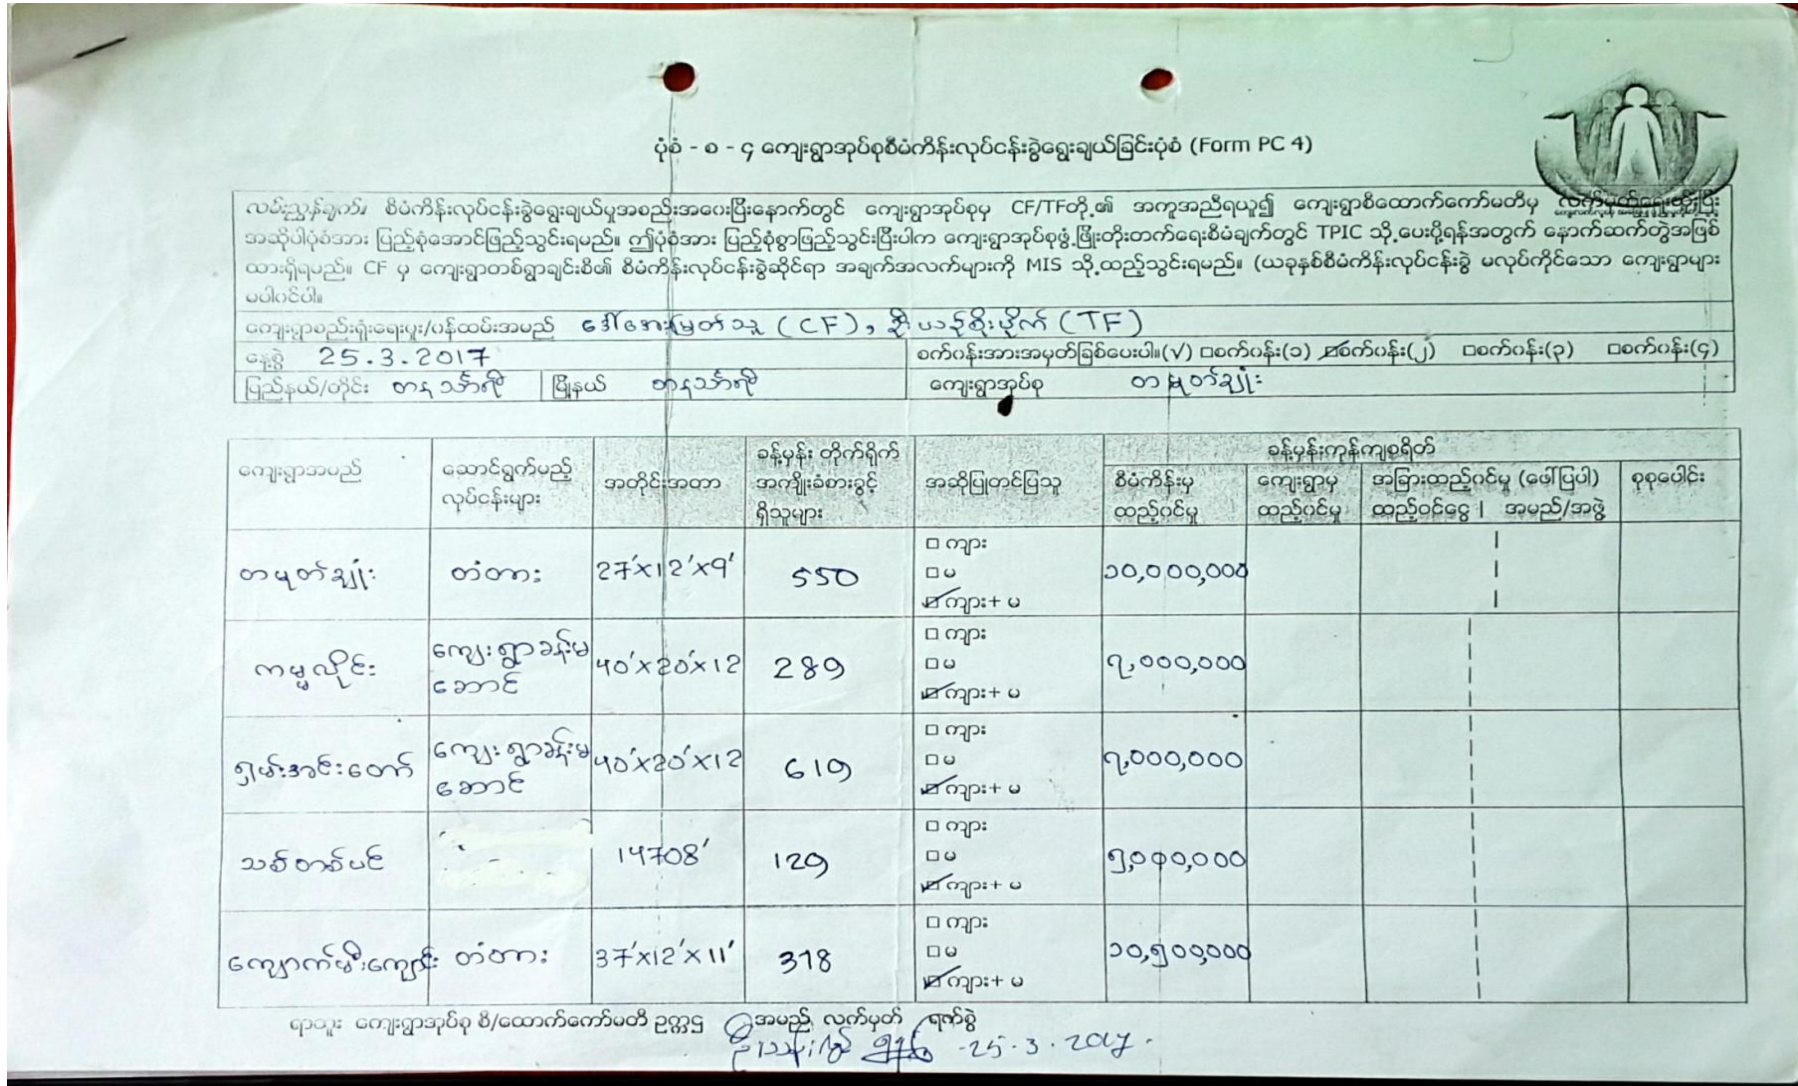 ပုံစံ - စ - ၄ ကျေးရွာအုပ်စုစီမံကိန်းလုပ်ငန်းခွဲရွေးချယ်ခြင်းပုံစံ (Form PC 4)
လမ်းညွှန်ချက်၊ စီမံကိန်းလုပ်ငန်းခွဲရွေးချယ်မှုအစည်းအဝေးပြီးနောက်တွင် ကျေးရွာအုပ်စုမှ CF/TFတို့၏ အကူအညီရယူ၍ ကျေးရွာစီထောက်ကော်မတီမှ လက်မှတ်ရေးထိုးပြီး
အဆိုပါပုံစံအား ပြည့်စုံအောင်ဖြည့်သွင်းရမည်။ ဤပုံစံအား ပြည့်စုံစွာဖြည့်သွင်းပြီးပါက ကျေးရွာအုပ်စုဖွံ့ဖြိုးတိုးတက်ရေးစီမံချက်တွင် TPIC သို့ပေးပို့ရန်အတွက် နောက်ဆက်တွဲအဖြစ်
ထားရှိရမည်။ CF မှ ကျေးရွာတစ်ရွာချင်းစီ၏ စီမံကိန်းလုပ်ငန်းခွဲဆိုင်ရာ အချက်အလက်များကို MIS သို့ထည့်သွင်းရမည်။ (ယခုနှစ်စီမံကိန်းလုပ်ငန်းခွဲ မလုပ်ကိုင်သော ကျေးရွာများ
မပါဝင်ပါ။
ကျေးရွာစည်းရုံးရေးမှူး/ဝန်ထမ်းအမည် ဒေါ်အေးမြတ်သူ (CF), ဦးယဉ်စိုးမိုက် (TF)
နေ့စွဲ 25.3.2017 စက်ဝန်းအားအမှတ်ခြစ်ပေးပါ။(√) □စက်ဝန်း(၁) ☑စက်ဝန်း(၂) □စက်ဝန်း(၃) □စက်ဝန်း(၄)
ပြည်နယ်/တိုင်း တနင်္သာရီ မြို့နယ် တနင်္သာရီ ကျေးရွာအုပ်စု တမုတ်ချုံး
ကျေးရွာအမည် ဆောင်ရွက်မည့် လုပ်ငန်းများ အတိုင်းအတာ ခန့်မှန်း တိုက်ရိုက် အကျိုးခံစားခွင့် ရှိသူများ အဆိုပြုတင်ပြသူ ခန့်မှန်းကုန်ကျစရိတ်
စီမံကိန်းမှ ထည့်ဝင်မှု ကျေးရွာမှ ထည့်ဝင်မှု အခြားထည့်ဝင်မှု (ဖေါ်ပြပါ) ထည့်ဝင်ငွေ | အမည်/အဖွဲ့ စုစုပေါင်း
တမုတ်ချုံး တံတား 27'x12'x9' 550 □ ကျား □ မ ☑ ကျား+ မ ၁၀,၀၀၀,၀၀၀
ကမ္မလိုင်း ကျေးရွာခန်းမ ဆောင် 40'x20'x12 289 □ ကျား □ မ ☑ ကျား+ မ ၇,၀၀၀,၀၀၀
ရှမ်းအင်းတော် ကျေးရွာခန်းမ ဆောင် 40'x20'x12 619 □ ကျား □ မ ☑ ကျား+ မ ၇,၀၀၀,၀၀၀
သစ်တစ်ပင် 14708' 129 □ ကျား □ မ ☑ ကျား+ မ ၅,၀၀၀,၀၀၀
ကျောက်မီးကျောင်း တံတား 37'x12'x11' 318 □ ကျား □ မ ☑ ကျား+ မ ၁၀,၅၀၀,၀၀၀
ရာထူး ကျေးရွာအုပ်စု စီ/ထောက်ကော်မတီ ဥက္ကဌ အမည် လက်မှတ် ရက်စွဲ
25.3.2017.